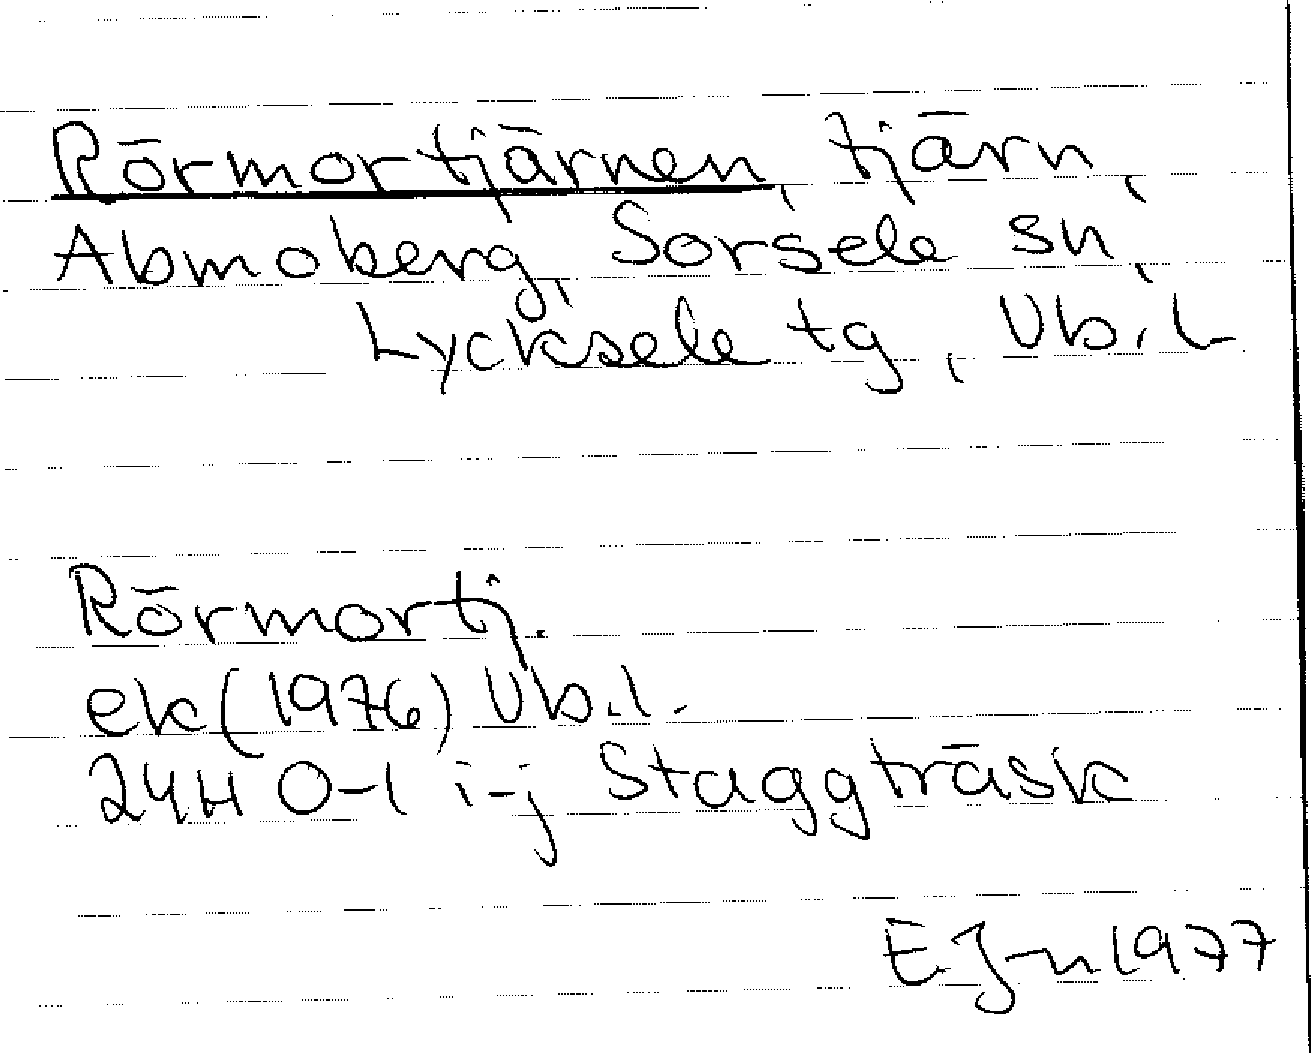 Rörmortjärnen, tjärn,
Abmoberg, Sorsele sn,
Lycksele tg, Vb.l.
Rörmortj.
ek (1976) Vb.l.
24H 0-1 i-j Staggträsk
E.J-n 1977